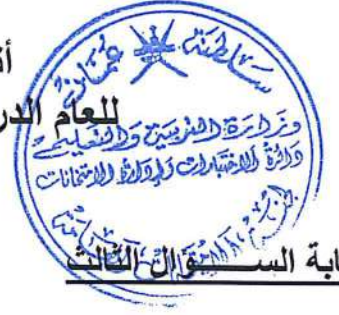 أن
للعام الدر
سلطنة عُمان
وزارة التربية والتعليم
دائرة الاختبارات وإدارة الامتحانات
ابة الســـؤال الثالث